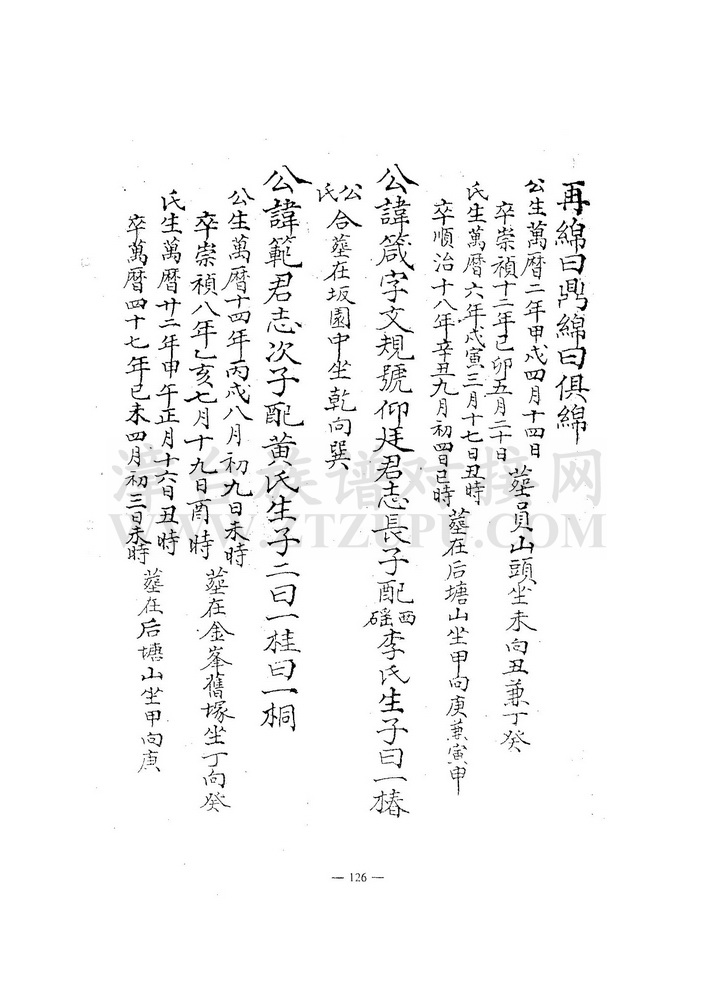 再綿曰鼎綿曰俱綿
公生萬曆二年甲戍四月十四日
卒崇禎十二年已卯五月二十日
塟員山頭坐未向丑兼丁癸
氏生萬曆六年戊寅三月十七日丑時
卒順治十八年辛丑九月初四日巳時
塟在后塘山坐甲向庚兼寅申
公諱箴字文規號仰廷君志長子配西磘李氏生子曰一椿
公氏合塟在坂園中坐乾向巽
公諱範君志次子配黄氏生子二曰一桂曰一桐
公生萬曆十四年丙戍八月初九日未時
卒崇禎八年乙亥七月十九日酉時
塟在金峯舊塚坐丁向癸
氏生萬曆廿二年甲午正月十六日丑時
卒萬曆四十七年已未四月初三日未時
塟在后塘山坐甲向庚
漳台族谱对接网
WWW.ZTZUPU.COM
— 126 —